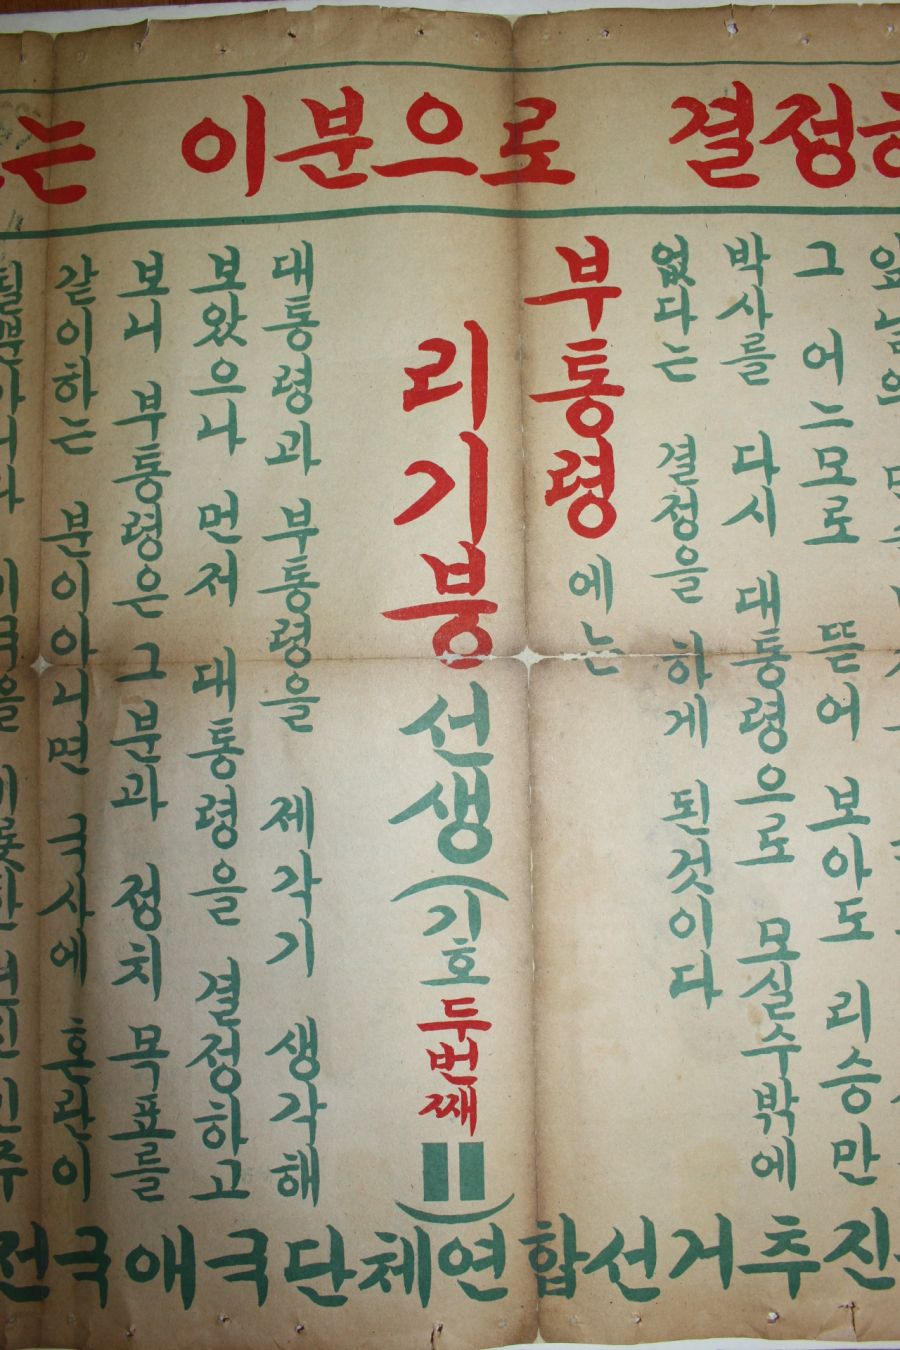 는 이분으로 결정하
그 어느모로 뜯어 보아도 리승만
박사를 다시 대통령으로 모실수밖에
없다는 결정을 하게 된것이다
부통령에는
리기붕 선생(기호 두번째 II)
대통령과 부통령을 제각기 생각해
보왔으나 먼저 대통령을 결정하고
보니 부통령은 그분과 정치 목표를
같이하는 분이아니면 국사에 혼란이
전국애국단체연합선거추진